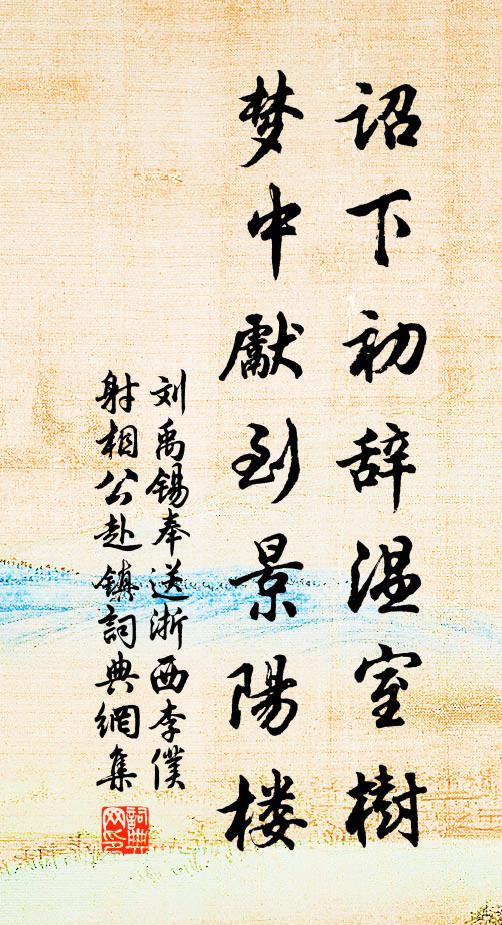 诏下初辞温室樹
梦中獻到景陽楼
刘禹锡奉送浙西李僕
射相公赴鎮詞典網集
詞典
网印